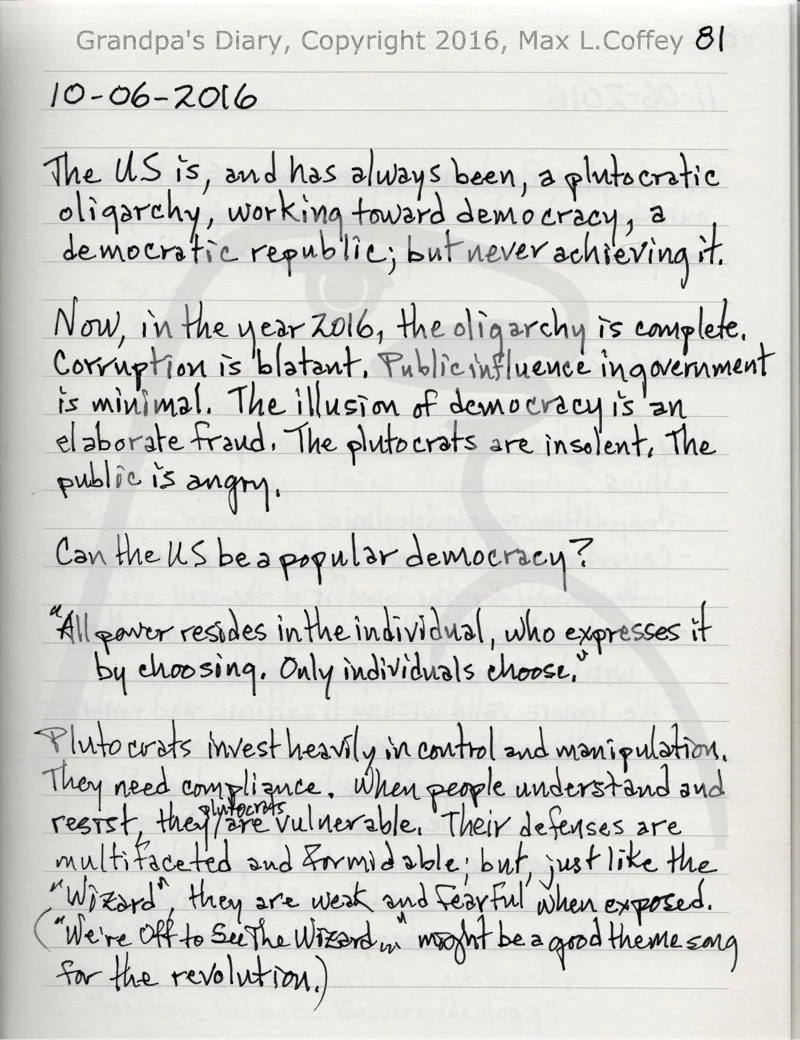 Grandpa's Diary, Copyright 2016, Max L.Coffey 81
10-06-2016
The US is, and has always been, a plutocratic
oligarchy, working toward democracy, a
democratic republic; but never achieving it.
Now, in the year 2016, the oligarchy is complete.
Corruption is blatant. Public influence in government
is minimal. The illusion of democracy is an
elaborate fraud. The plutocrats are insolent. The
public is angry.
Can the US be a popular democracy?
"All power resides in the individual, who expresses it
by choosing. Only individuals choose."
Plutocrats invest heavily in control and manipulation.
They need compliance. When people understand and
plutocrats
resist, they/are vulnerable. Their defenses are
multifaceted and formidable; but, just like the
"Wizard", they are weak and fearful when exposed.
("We're Off to See The Wizard..." might be a good theme song
for the revolution.)